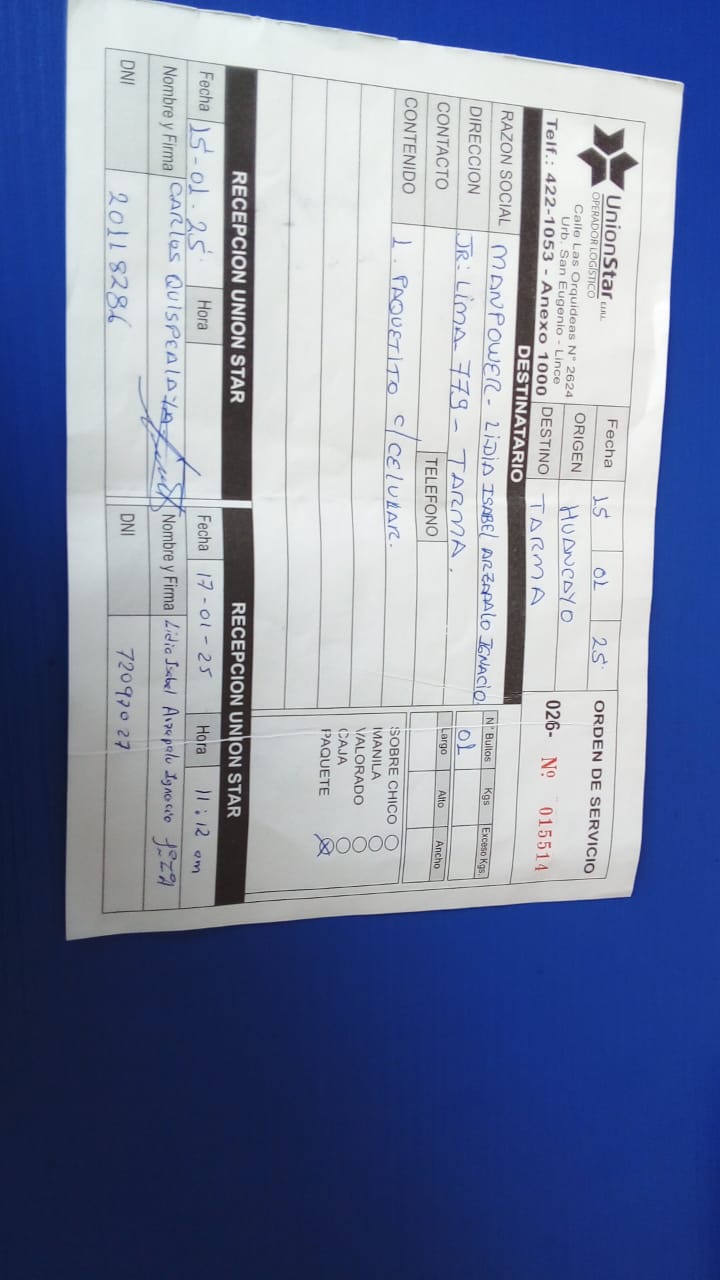 UnionStar E.I.R.L.
OPERADOR LOGÍSTICO
Calle Las Orquideas N° 2624
Urb. San Eugenio - Lince
Telf.: 422-1053 - Anexo 1000
Fecha 15 01 25
ORIGEN HUANCAYO
DESTINO TARMA
ORDEN DE SERVICIO
026- Nº 015514
DESTINATARIO
RAZON SOCIAL MANPOWER - LIDIA ISABEL ARZAPALO IGNACIO
DIRECCION JR: LIMA 779 - TARMA.
CONTACTO TELEFONO
CONTENIDO 1. PAQUETITO c/CELULAR.
N° Bultos Kgs Exceso Kgs.
01
Largo Alto Ancho
SOBRE CHICO
MANILA
VALORADO
CAJA
PAQUETE X
RECEPCION UNION STAR
Fecha 15-01-25 Hora
Nombre y Firma CARLOS QUISPEALAYA
DNI 20118286
RECEPCION UNION STAR
Fecha 17-01-25 Hora 11:12 am
Nombre y Firma Lidia Isabel Arzapalo Ignacio
DNI 72097027